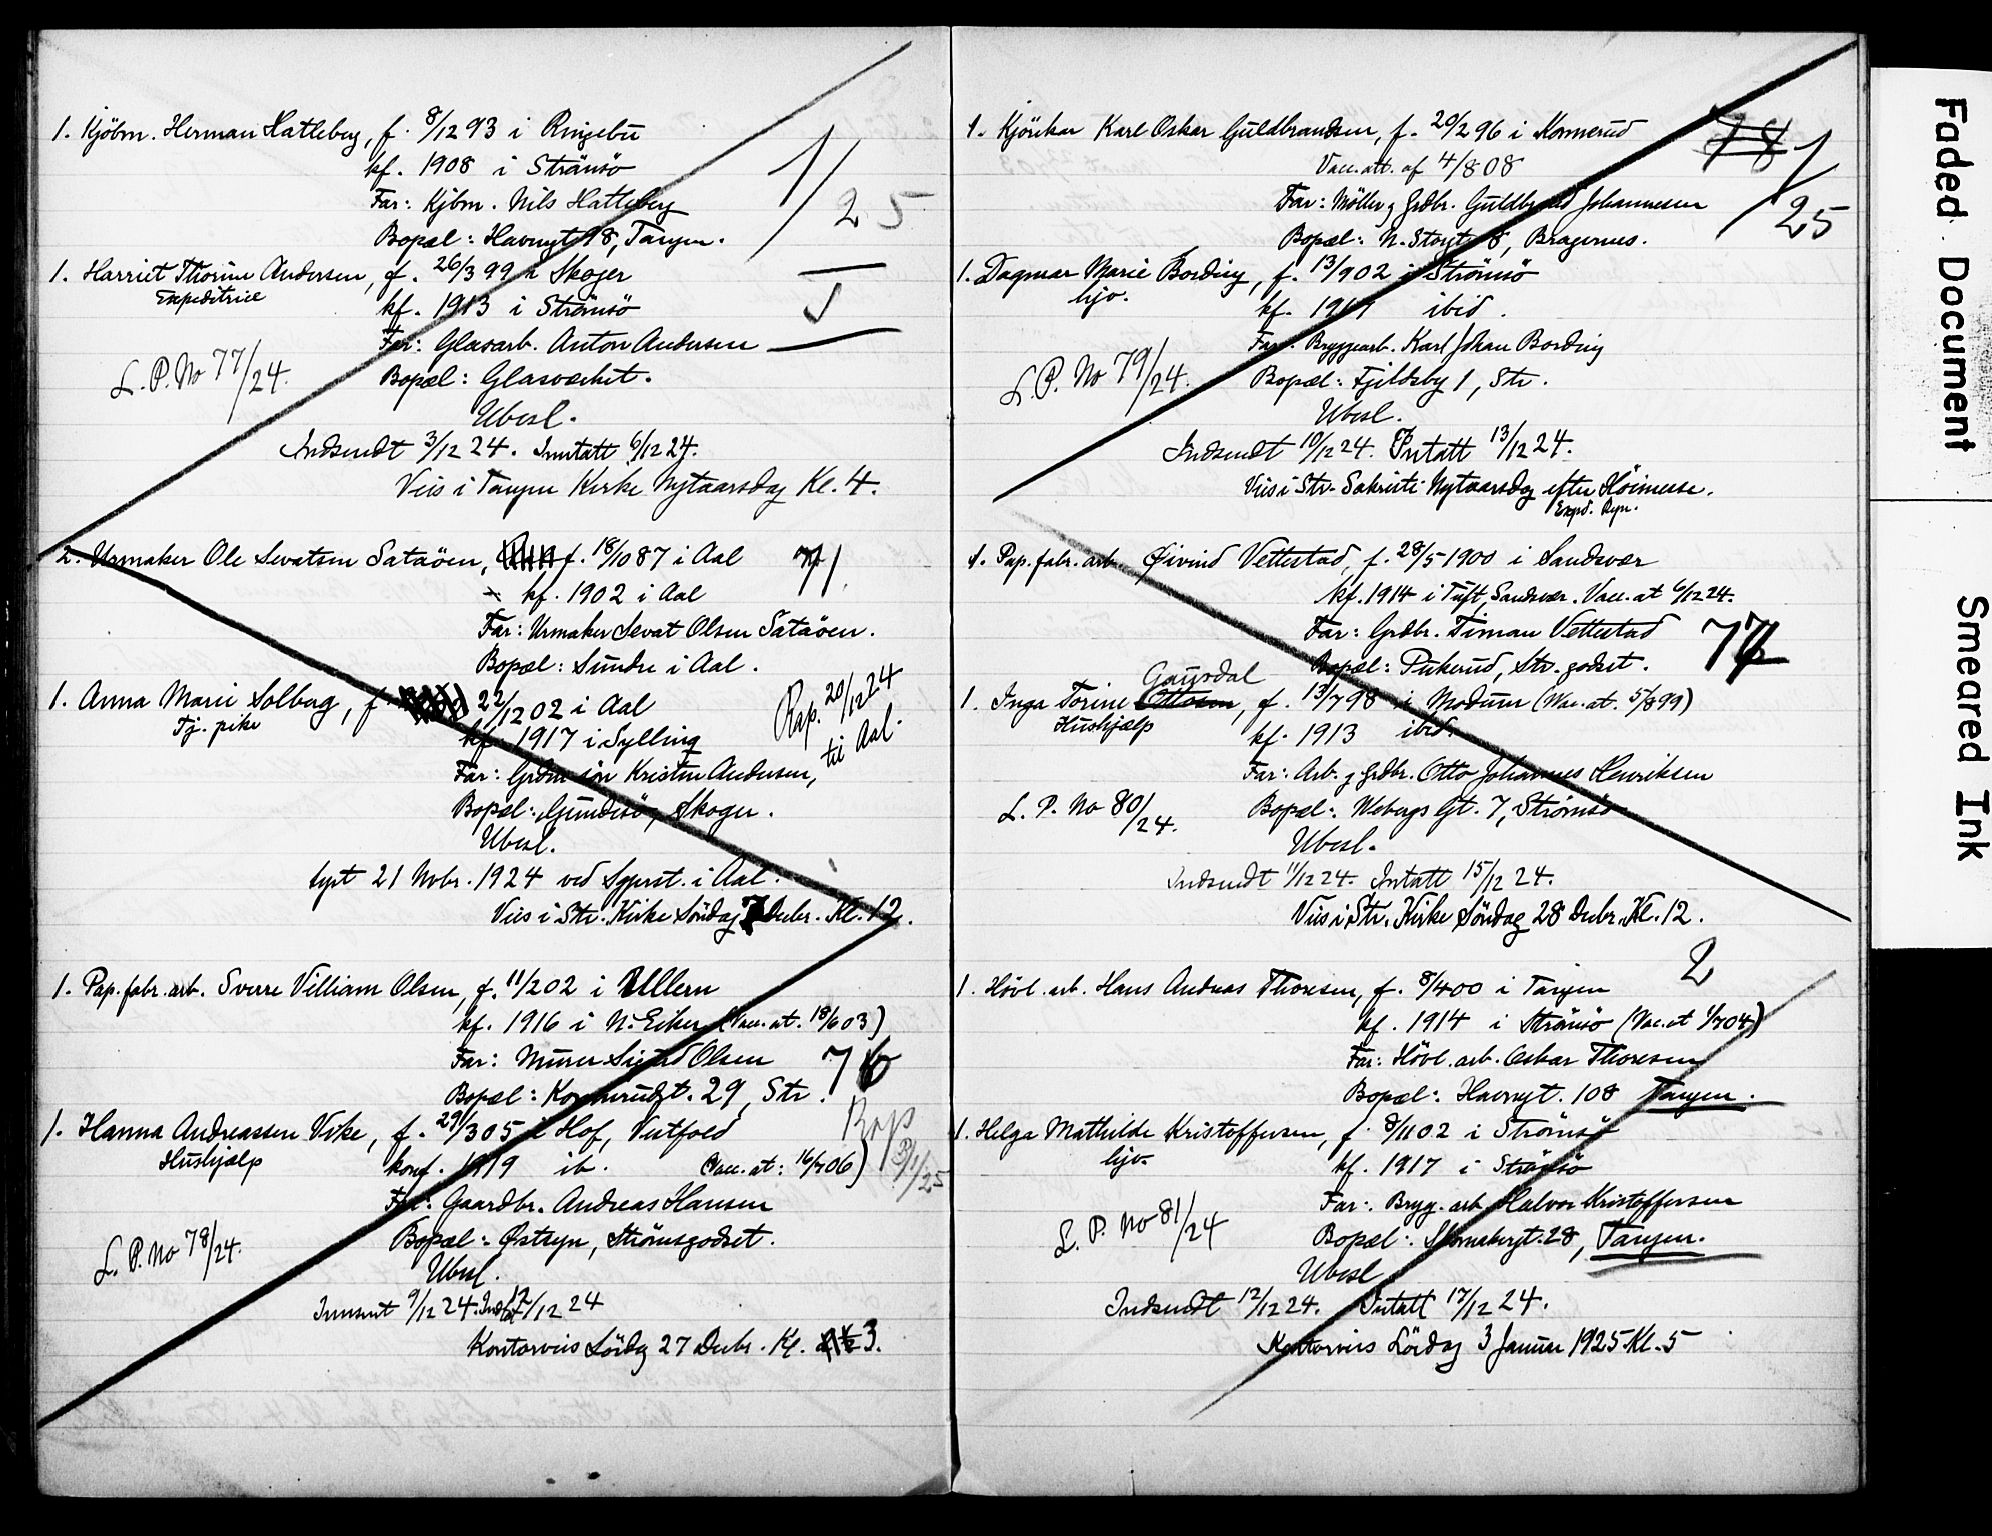 1. Kjöbm. Herman Hatleberg, f. 8/12 93 i Ringebu
kf. 1908 i Strömsö
Far: Kjbm. Nils Hatleberg
Bopæl: Havnegt 18, Tangen.
1/25
1. Harriet Thorine Andersen, f. 26/3 99 i Skoger
Expeditrice
kf. 1913 i Strömsö
Far: Glasarb. Anton Andersen
L. P. No 77/24.
Bopæl: Glasværket.
Ubesl.
Indsendt 3/12 24. Inntatt 6/12 24.
Vies i Tangen Kirke Nytaarsdag Kl. 4.
2. Urmaker Ole Sevatsen Sataöen, f. 18/10 87 i Aal
71
kf. 1902 i Aal
Far: Urmaker Sevat Olsen Sataöen.
Bopæl: Sundre i Aal.
1. Anna Marie Solberg, f. 22/12 02 i Aal
Tj. pike
kf. 1917 i Sylling
Rap. 20/12 24 til Aal.
Far: Kristen Andersen,
Bopæl: Gundesö, Skoger.
Ubesl.
Lyst 21 Nobr. 1924 ved Sgprst. i Aal.
Vies i Str. Kirke Söndag 7 Debr. Kl. 12.
1. Pap. fabr. arb. Sverre Villiam Olsen, f. 11/2 02 i Ullern
kf. 1916 i N. Eiker (Vacc. at. 18/6 03)
Far: Murer Sigurd Olsen
76
Bopæl: Konnerudgt. 29, Str.
1. Hanna Andreassen Vike, f. 29/3 05 i Hof, Vestfold
Hushjælp
Rap 3/1/25
konf. 1919 ib. (Vacc. at: 16/7 06)
Far: Gaardbr. Andreas Hansen
L. P. No 78/24.
Bopæl: Östbyn, Strömsgodset.
Ubesl.
Innsent 9/12 24. Indtat 12/12 24
Kontorvies Lördag 27 Debr. Kl. 3.
1. Kjörekar Karl Oskar Guldbrandsen, f. 20/2 96 i Konnerud
78
1/25
Vacc. att. af 4/8 08
Far: Möller g Grdbr. Guldbrand Johannesen
Bopæl: N. Storgt 8, Bragernes.
1. Dagmar Marie Bording, f. 13/9 02 i Strömsö
hjv.
kf. 1917 ibid.
Far: Bryggearb. Karl Johan Bording
L. P. No 79/24.
Bopæl: Fjeldsby 1, Str.
Ubesl.
Indsendt 10/12 24. Intatt 13/12 24.
Vies i Str. Sakristi Nytaarsdag efter Höimesse.
1. Pap. fabr. arb. Øivind Vettestad, f. 28/5 1900 i Sandsvær
kf. 1914 i Tuft, Sandsvær. Vacc. at 6/12 24.
Far: Grdbr. Timan Vettestad
77
Bopæl: Pukerud, Str. godset.
Gaugsdal
1. Inga Torine Ottosen, f. 13/7 98 i Modum (Vac. at. 5/8 99)
Hushjælp
kf. 1913 ibid.
Far: Arb. g Grdbr. Otto Johannes Henriksen
L. P. No 80/24.
Bopæl: Webergs Gt. 7, Strömsö
Ubesl.
Indsendt 11/12 24. Intatt 15/12 24.
Vies i Str. Kirke Söndag 28 Debr. Kl. 12.
2
1. Hövl. arb. Hans Andreas Thoresen, f. 8/4 00 i Tangen
kf. 1914 i Strömsö (Vac. at 1/7 04)
Far: Hövl. arb. Oskar Thoresen
Bopæl: Havnegt. 108 Tangen.
1. Helga Mathilde Kristoffersen, f. 8/11 02 i Strömsö
hjv.
kf. 1917 i Strömsö
Far: Bryg. arb. Halvor Kristoffersen
L. P. No 81/24
Bopæl: Skomakergt. 28, Tangen.
Ubesl
Indsendt 12/12 24. Intatt 17/12 24.
Kontorvies Lördag 3 Januar 1925 Kl. 5
Faded Document
Smeared Ink